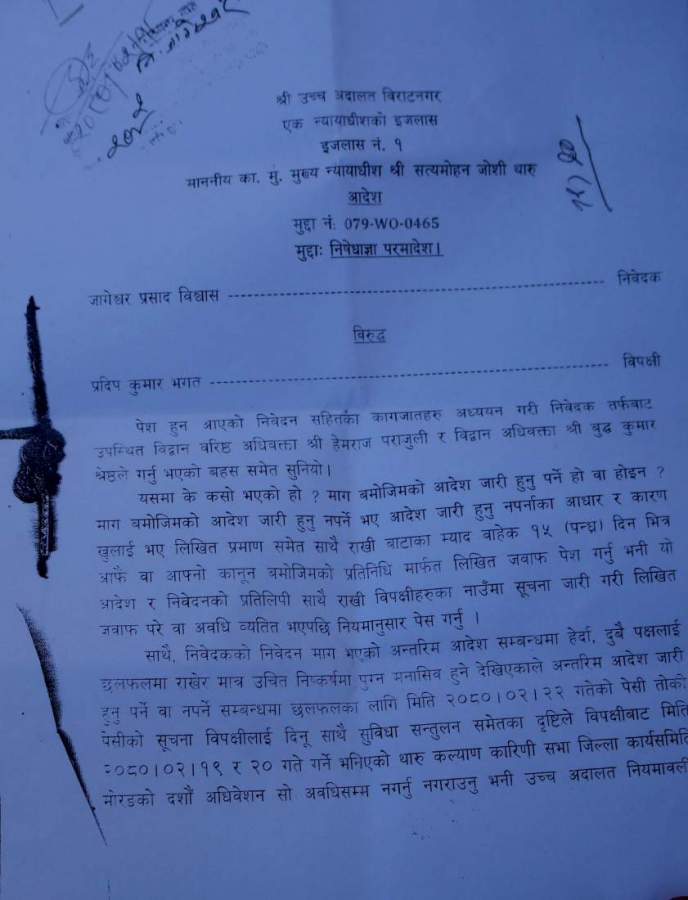 श्री उच्च अदालत बिराटनगर
एक न्यायाधीशको इजलास
इजलास नं. १
माननीय का. मु. मुख्य न्यायाधीश श्री सत्यमोहन जोशी थारु
आदेश
मुद्दा नं: 079-WO-0465
मुद्दाः निषेधाज्ञा परमादेश।
जागेश्वर प्रसाद विश्वास ------------------------------------------------ निवेदक
विरुद्ध
प्रदिप कुमार भगत ------------------------------------------------ विपक्षी
पेश हुन आएको निवेदन सहितका कागजातहरु अध्ययन गरी निवेदक तर्फबाट
उपस्थित विद्वान वरिष्ठ अधिवक्ता श्री हेमराज पराजुली र विद्वान अधिवक्ता श्री बुद्ध कुमार
श्रेष्ठले गर्नु भएको बहस समेत सुनियो।
यसमा के कसो भएको हो ? माग बमोजिमको आदेश जारी हुनु पर्ने हो वा होइन ?
माग बमोजिमको आदेश जारी हुनु नपर्ने भए आदेश जारी हुनु नपर्नाका आधार र कारण
खुलाई भए लिखित प्रमाण समेत साथै राखी बाटाका म्याद वाहेक १५ (पन्ध्र) दिन भित्र
आफै वा आफ्नो कानून बमोजिमको प्रतिनिधि मार्फत लिखित जवाफ पेश गर्नु भनी यो
आदेश र निवेदनको प्रतिलिपी साथै राखी विपक्षीहरुका नाउँमा सूचना जारी गरी लिखित
जवाफ परे वा अवधि व्यतित भएपछि नियमानुसार पेस गर्नु ।
साथै, निवेदकको निवेदन माग भएको अन्तरिम आदेश सम्बन्धमा हेर्दा, दुबै पक्षलाई
छलफलमा राखेर मात्र उचित निष्कर्षमा पुग्न मनासिव हुने देखिएकाले अन्तरिम आदेश जारी
हुनु पर्ने वा नपर्ने सम्बन्धमा छलफलका लागि मिति २०८०।०२।२२ गतेको पेसी तोकी
पेसीको सूचना विपक्षीलाई दिनू साथै सुविधा सन्तुलन समेतका दृष्टिले विपक्षीबाट मिति
२०८०।०२।१९ र २० गते गर्ने भनिएको थारु कल्याण कारिणी सभा जिल्ला कार्यसमिति
मोरङको दशौं अधिवेशन सो अवधिसम्म नगर्नु नगराउनु भनी उच्च अदालत नियमावली